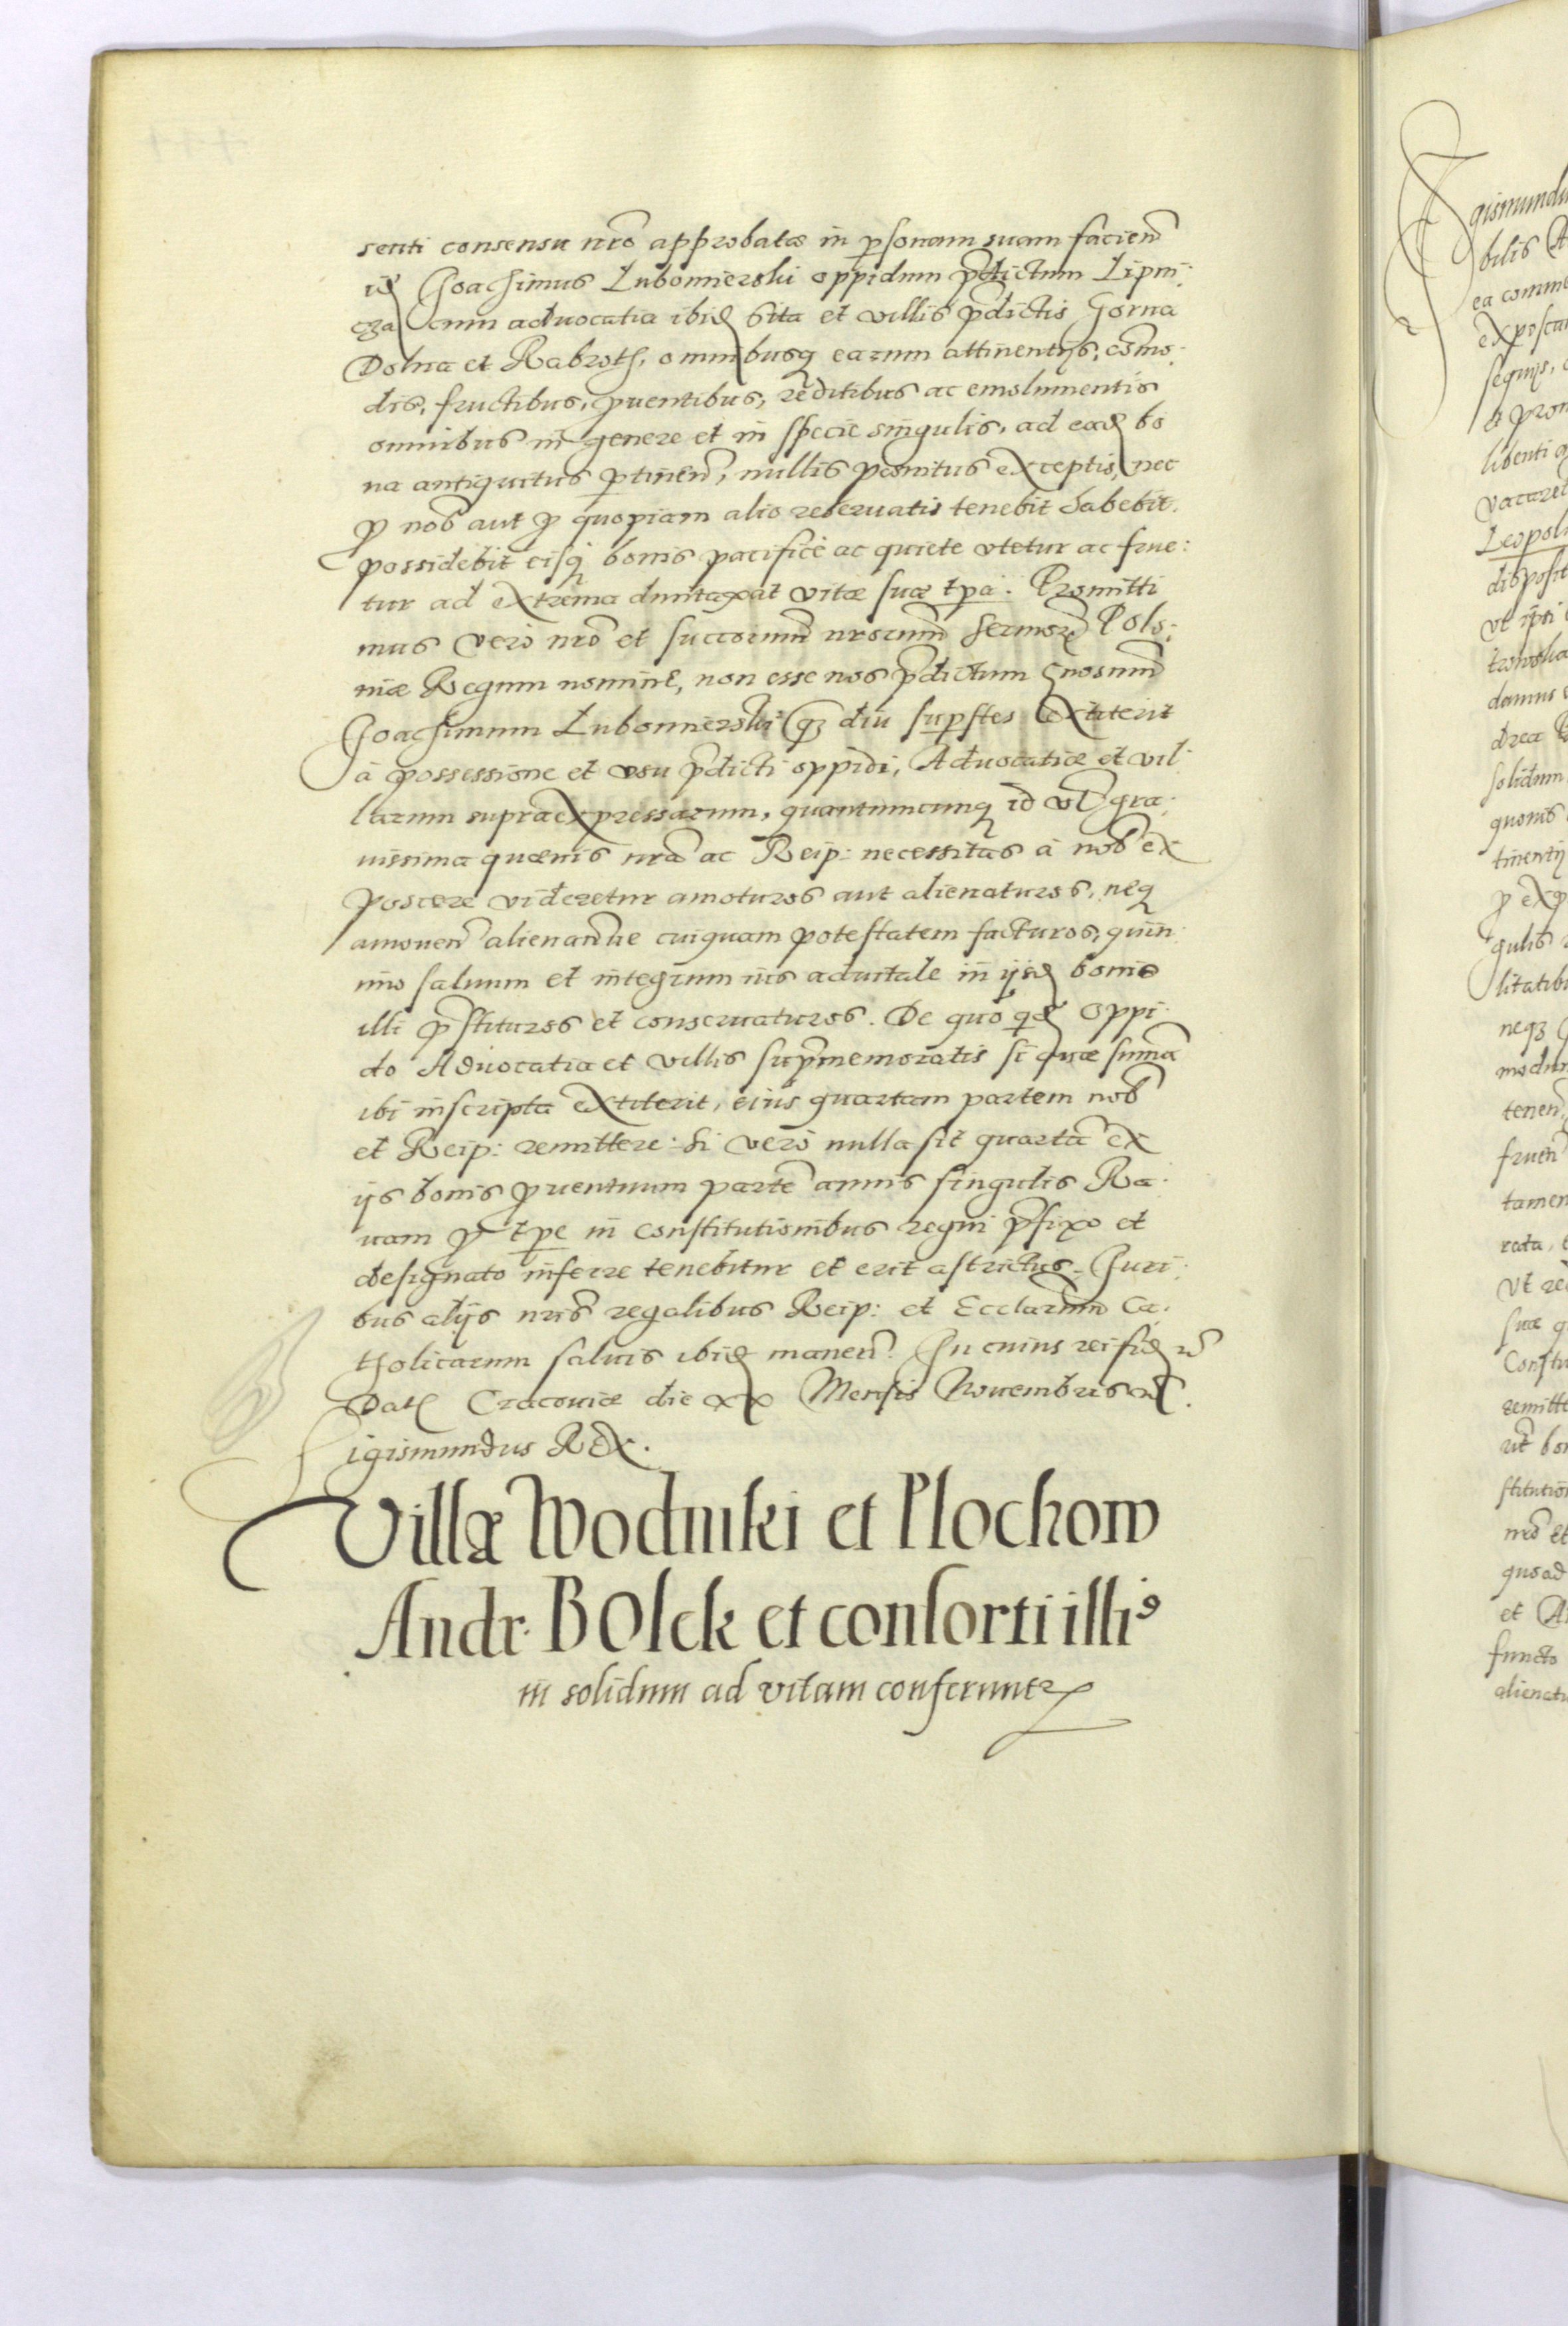 senti consensu nrõ approbatæ in psonam suam facien̄
id Joachimus Lubomierski oppidum p̄dictum Lipni:
cza cum aduocatia ibid sita et villis p̄dictis Gorna
Dolna et Rabroth, omnibusq earum attinentijs, com̄o:
dis, fructibus, puentibus, redditibus ac emolumentis
omnibus in genere et in specie singulis, ad ead bo
na antiquitus ptinen̄, nullis penitus exceptis, nec
p nob aut p quopiam alio reseruatis tenebit habebit.
possidebit eisq bonis pacificè ac quiete vtetur ac frue:
tur ad extrema duntaxat vitæ suæ tpa. Promitti
mus verò nrõ et succorum̄ nrorum̄ Sermor̃ Polo:
niæ Regum nomine, non esse nos p̄dictum gnosum̄
Joachimum Lubomierski q̃ diu supstes extiterit
à possessione et vsu p̄dicti oppidi, Aduocatiæ et vil:
larum supraexpressarum, quantumcunq id vl̃ gra:
uissima quæuis nrã ac Reip: necessitas à nob ex
poscere videretur amoturos aut alienaturos, neq
amouen̄ alienan̄ue cuiquam potestatem facturos, quin:
imo saluum et integrum ius aduitale in ijsd bonis
illi p̄stituros et conseruaturos. De quo qd oppi:
do Aduocatia et villis suprmemoratis si quæ sum̄a
ibi inscripta extiterit, eius quartam partem nob
et Reip: remittere: Si verò nulla sit quartã ex
ijs bonis puentuum partẽ annis singulis Ra:
uam p tpe in constitutionibus regni p̄fixo et
designato inferre tenebitur et erit astrictus. Juri:
bus alijs nris̃ regalibus Reip: et Ecclarum̄ Ca:
tholicarum saluis ibid manen̄. In cuius rei fid
Dat Cracouiæ die xx Mensis Nouembris
Sigismundus Rex.
Villæ Wodniki et Plochow
Andr. BOlek et consorti illiꝰ
in solidum ad vitam conferunt
gismundu
bilis A
ea comme
exposcu
sequijs,
a pron
libenti a
vacaret
Leopoli
disposit
vt ipsi
trowska
damus
drea
solidum
quouis
tinentij
p exp
gulis
litatibu
neq3
modum
tenen̄
fruen̄
tamen
rata,
vt re
suæ q
Constu
remitte
rit bon
stitution
nrõ et
quoad
et A
functo
alienatu